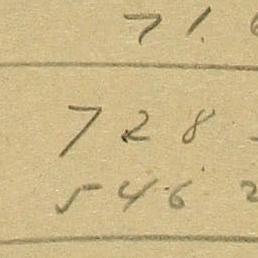 71.6
728
5462